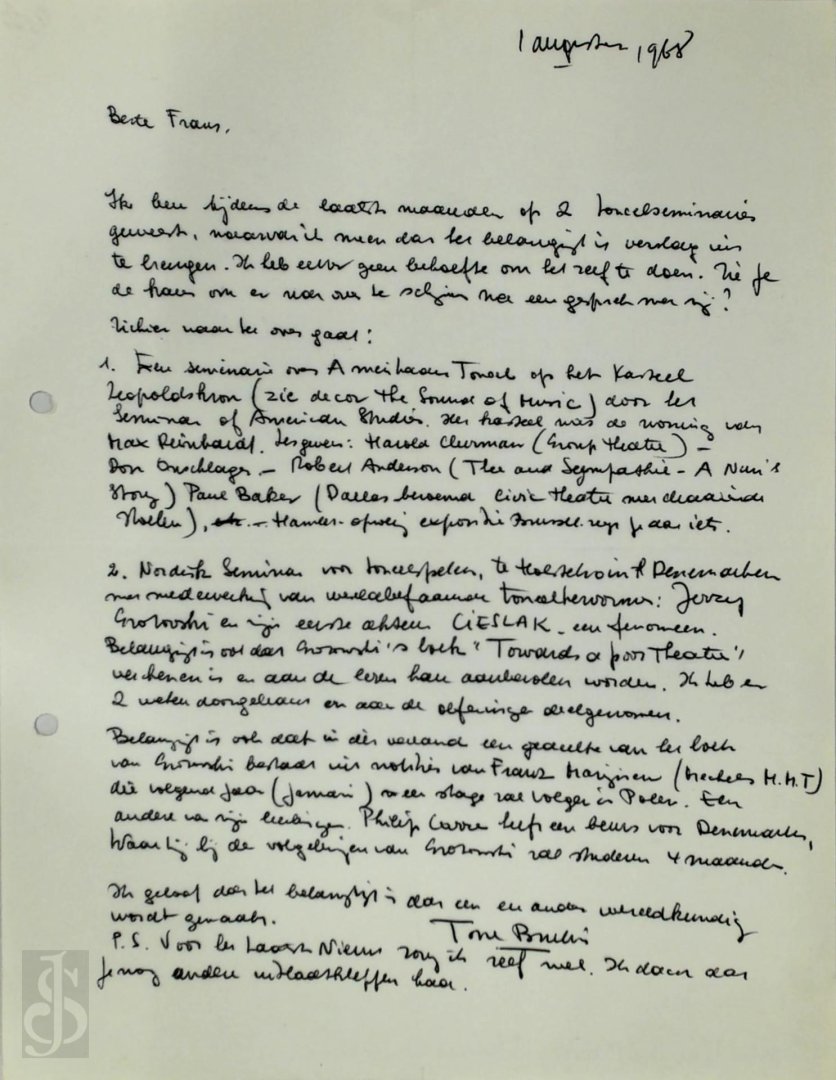 1 augustus 1968
Beste Frans,
Ik ben tijdens de laatste maanden op 2 toneelseminaries
geweest, waarvan ik meen dat het belangrijk is verslag uit
te brengen. Ik heb echter geen behoefte om het zelf te doen. Zie je
de kans om er wat over te schrijven na een gesprek met mij?
Ziehier waar het over gaat:
1. Een seminarie over Amerikaans Toneel op het Kasteel
Leopoldskron (zie decor The Sound of Music) door het
Seminar of American Studies. Het kasteel was de woning van
Max Reinhardt. Lesgevers: Harold Clurman (Group Theatre) -
Don Oenschlager - Robert Anderson (Thee and Sympathie - A Nun's
Story) Paul Baker (Dallas beroemd Civic theatre met draaiende
stoelen), etc. - Hamlet- opvoering expositie Brussel zegt je dat iets.
2. Nordisk Seminar voor toneelspelers, te Holstebro in Denemarken
met medewerking van wereldbefaamde toneelhervormer: Jerzy
Grotowski en zijn eerste acteur CIESLAK - een fenomeen.
Belangrijk is ook dat Grotowski's boek "Towards a poor Theatre"
verschenen is en aan de lezers kan aanbevolen worden. Ik heb er
2 weken doorgebracht en aan de oefeningen deelgenomen.
Belangrijk is ook dat in dit verband een gedeelte van het boek
van Grotowski bestaat uit notities van Franz Marijnen (Mechelen H.M.T)
die volgend jaar (januari) een stage zal volgen in Polen. Een
andere van mijn leerlingen, Philip         heeft een beurs voor Denemarken,
waar hij bij de volgelingen van Grotowski zal studeren 4 maanden.
Ik geloof dat het belangrijk is dat een en ander wereldkundig
wordt gemaakt.
Tone Brulin
P.S. Voor het Laatste Nieuws zorg ik zelf wel. Ik dacht dat
je nog andere                  had.